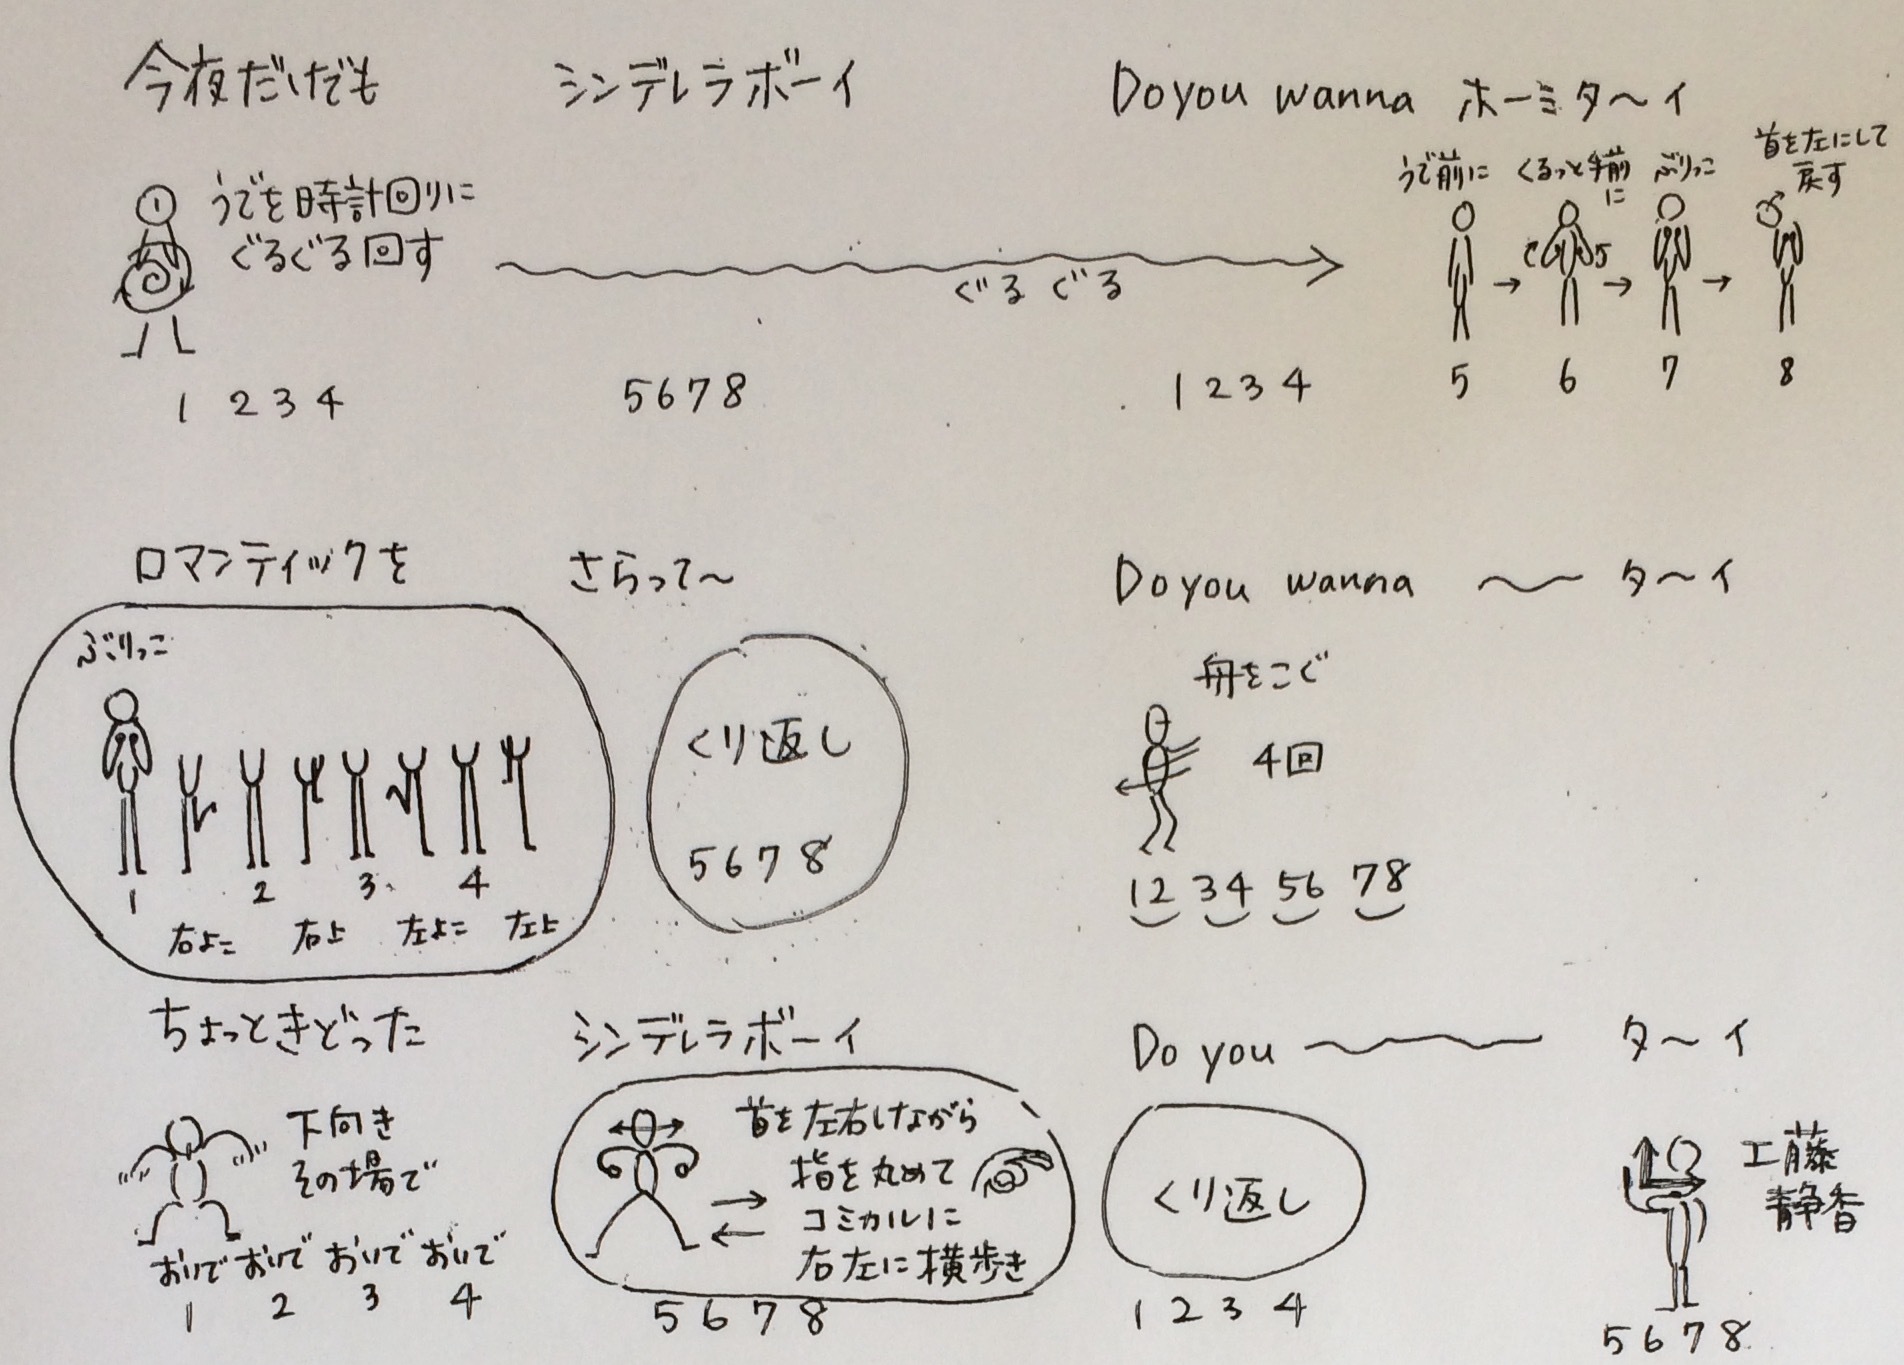 今夜だけでも シンデレラボーイ Do you wanna ホーミタ〜イ
うでを時計回りに
ぐるぐる回す
ぐるぐる
うで前に
くるっと手前
に
ぶりっこ
首を左にして
戻す
1 2 3 4 5 6 7 8 1 2 3 4 5 6 7 8
ロマンティックを さらって〜 Do you wanna 〜 タ〜イ
ぶりっこ
1 2 3 4
右よこ 右上 左よこ 左上
くり返し
5 6 7 8
舟をこぐ
4回
12 34 56 78
ちょっときどった シンデレラボーイ Do you 〜 タ〜イ
下向き
その場で
おいで おいで おいで おいで
1 2 3 4
首を左右しながら
指を丸めて
コミカルに
右左に横歩き
5 6 7 8
くり返し
1 2 3 4
工藤
静香
5 6 7 8